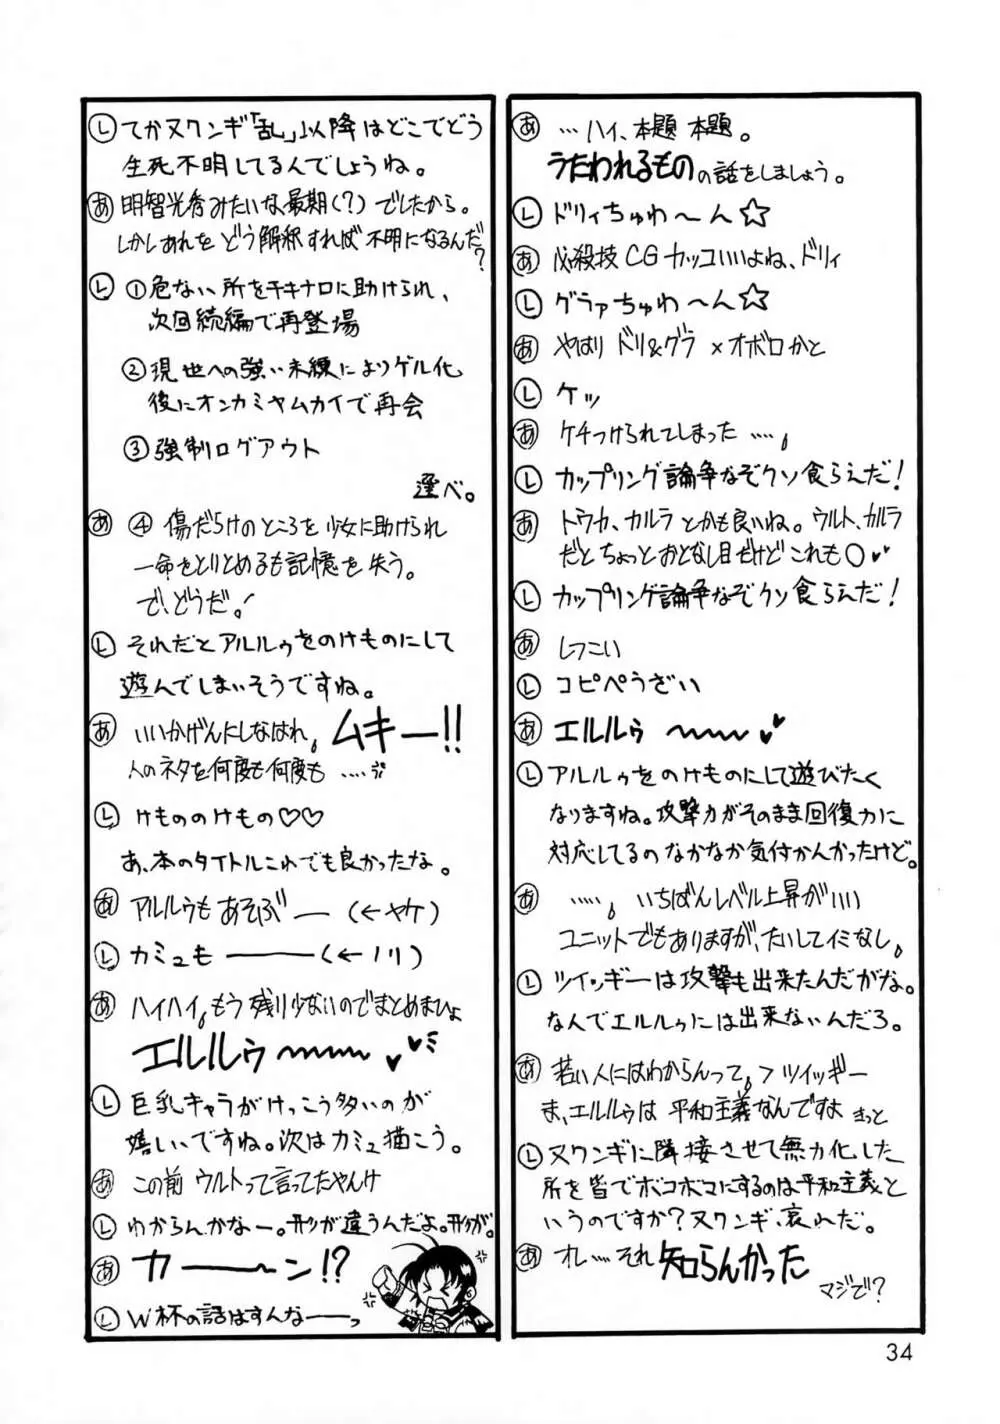 あ …ハイ、本題 本題。
うたわれるものの話をしましょう。
し ドリィちゅわ〜ん☆
あ 必殺技CGカッコいいよね、ドリィ
し グラァちゅわ〜ん☆
あ やはり ドリ&グラ×オボロかと
し ケッ
あ ケチつけられてしまった ……。
し カップリング論争なぞクソ食らえだ!
あ トウカ、カルラ とかも良いね。ウルト、カルラ
だと ちょっとおとなし目だけど これも○♥♥
し カップリング論争なぞクソ食らえだ!
あ しつこい
し コピペうざい
あ エルルゥ 〜〜〜♥
し アルルゥをのけものにして遊びたく
なりますね。攻撃力がそのまま回復力に
対応してるのなかなか気付かんかったけど。
あ ……。いちばんレベル上昇がいい
ユニットでもありますが、たいしてイミなし。
し ツイッギーは攻撃も出来たんだがな。
なんでエルルゥには出来ないんだろ。
あ 若い人にはわからんって。>ツイッギー
ま、エルルゥは 平和主義なんですよ きっと
し ヌワンギに隣接させて無力化した
所を皆でボコボコにするのは平和主義と
いうのですか?ヌワンギ、哀れだ。
あ オレ……それ 知らんかった
マジで?
し てかヌワンギ「乱」以降はどこでどう
生死不明してるんでしょうね。
あ 明智光秀みたいな最期(?)でしたから。
しかしあれを どう解釈すれば 不明になるんだ?
し ①危ない所をチキナロに助けられ、
次回続編で再登場
②現世への強い未練によりゲル化
後にオンカミヤムカイで再会
③強制ログアウト
選べ。
あ ④ 傷だらけのところを少女に助けられ
一命をとりとめるも記憶を失う。
で、どうだ!
し それだとアルルゥをのけものにして
遊んでしまいそうですね。
あ いいかげんにしなはれ。ムキー!!
人のネタを何度も何度も ……
し けもののけもの♡♡
あ、本のタイトルこれでも良かったな。
あ アルルゥも あそぶ— (←ヤケ)
し カミュも———(←ノリ)
あ ハイハイ。もう残り少ないのでまとめまひょ
エルルゥ 〜〜〜♥
し 巨乳キャラがけっこう多いのが
嬉しいですね。次はカミュ描こう。
あ この前 ウルトって言ってたやんけ
し わからんかなー。形が違うんだよ。形が。
あ カ———ン!?
し W杯の話はすんな———っ
34